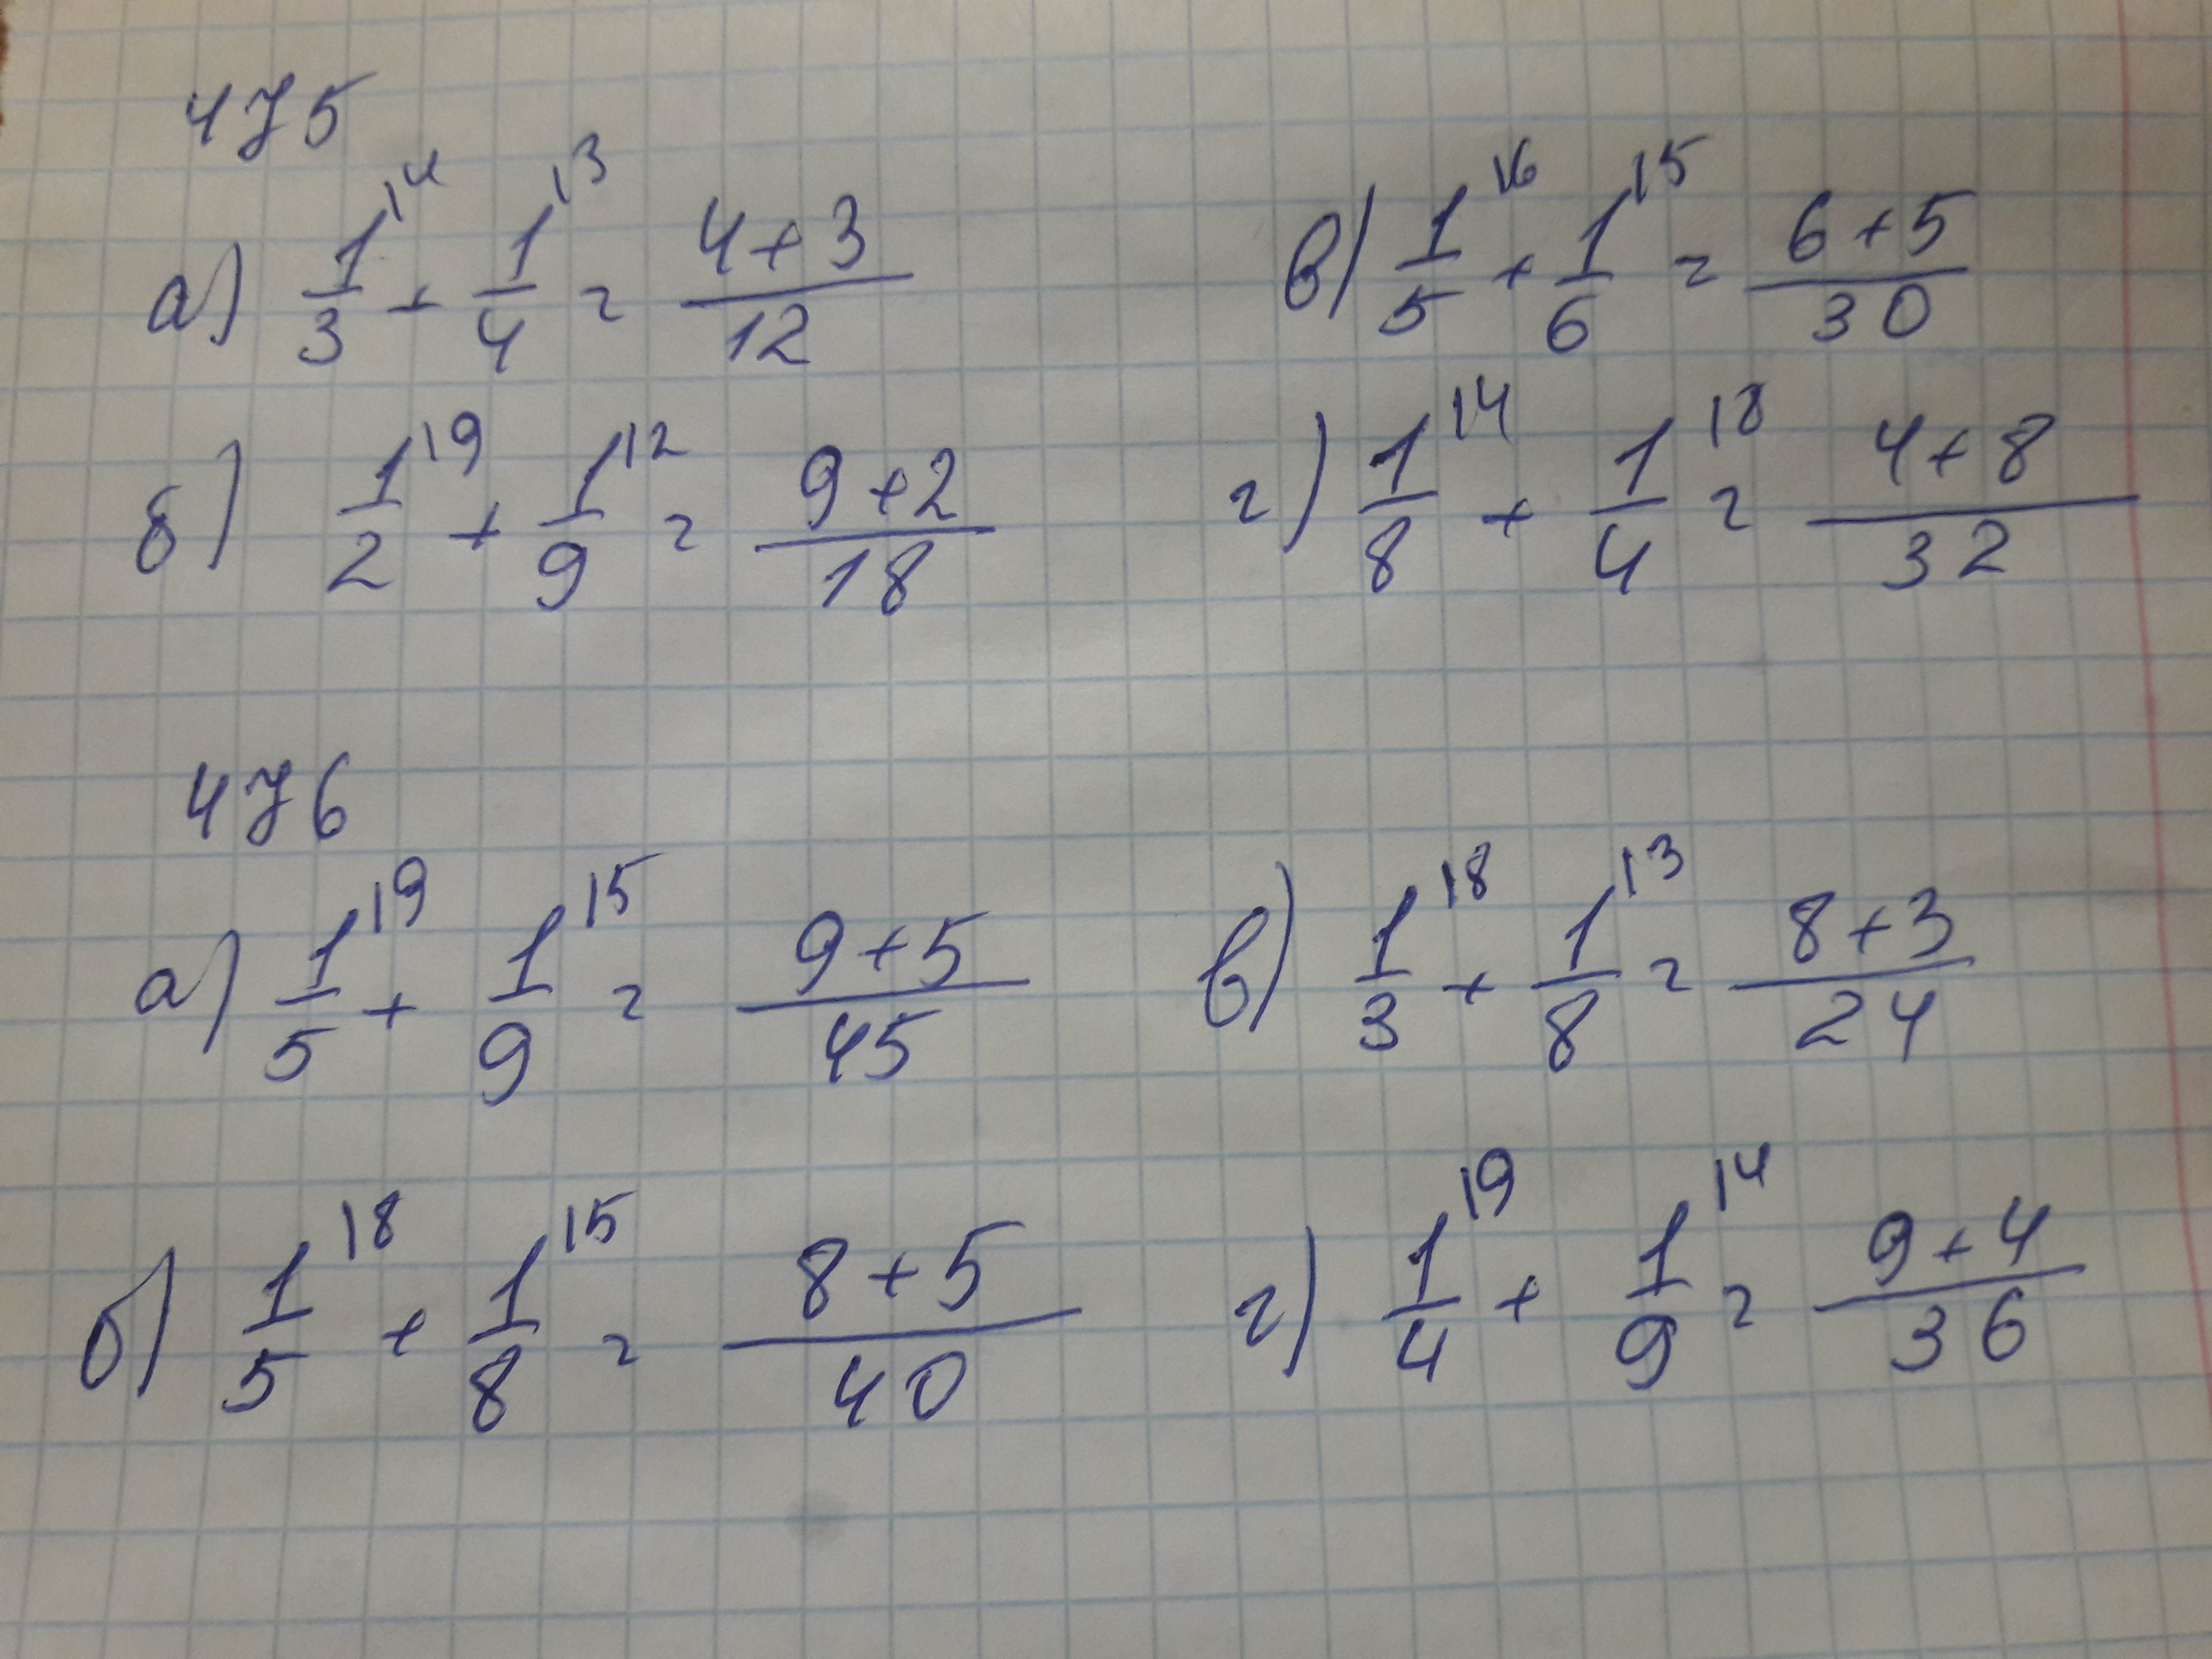 475
а) 1/3 |4 + 1/4 |3 = 4+3/12
в) 1/5 |6 + 1/6 |5 = 6+5/30
б) 1/2 |9 + 1/9 |2 = 9+2/18
г) 1/8 |4 + 1/4 |8 = 4+8/32
476
а) 1/5 |9 + 1/9 |5 = 9+5/45
в) 1/3 |8 + 1/8 |3 = 8+3/24
б) 1/5 |8 + 1/8 |5 = 8+5/40
г) 1/4 |9 + 1/9 |4 = 9+4/36